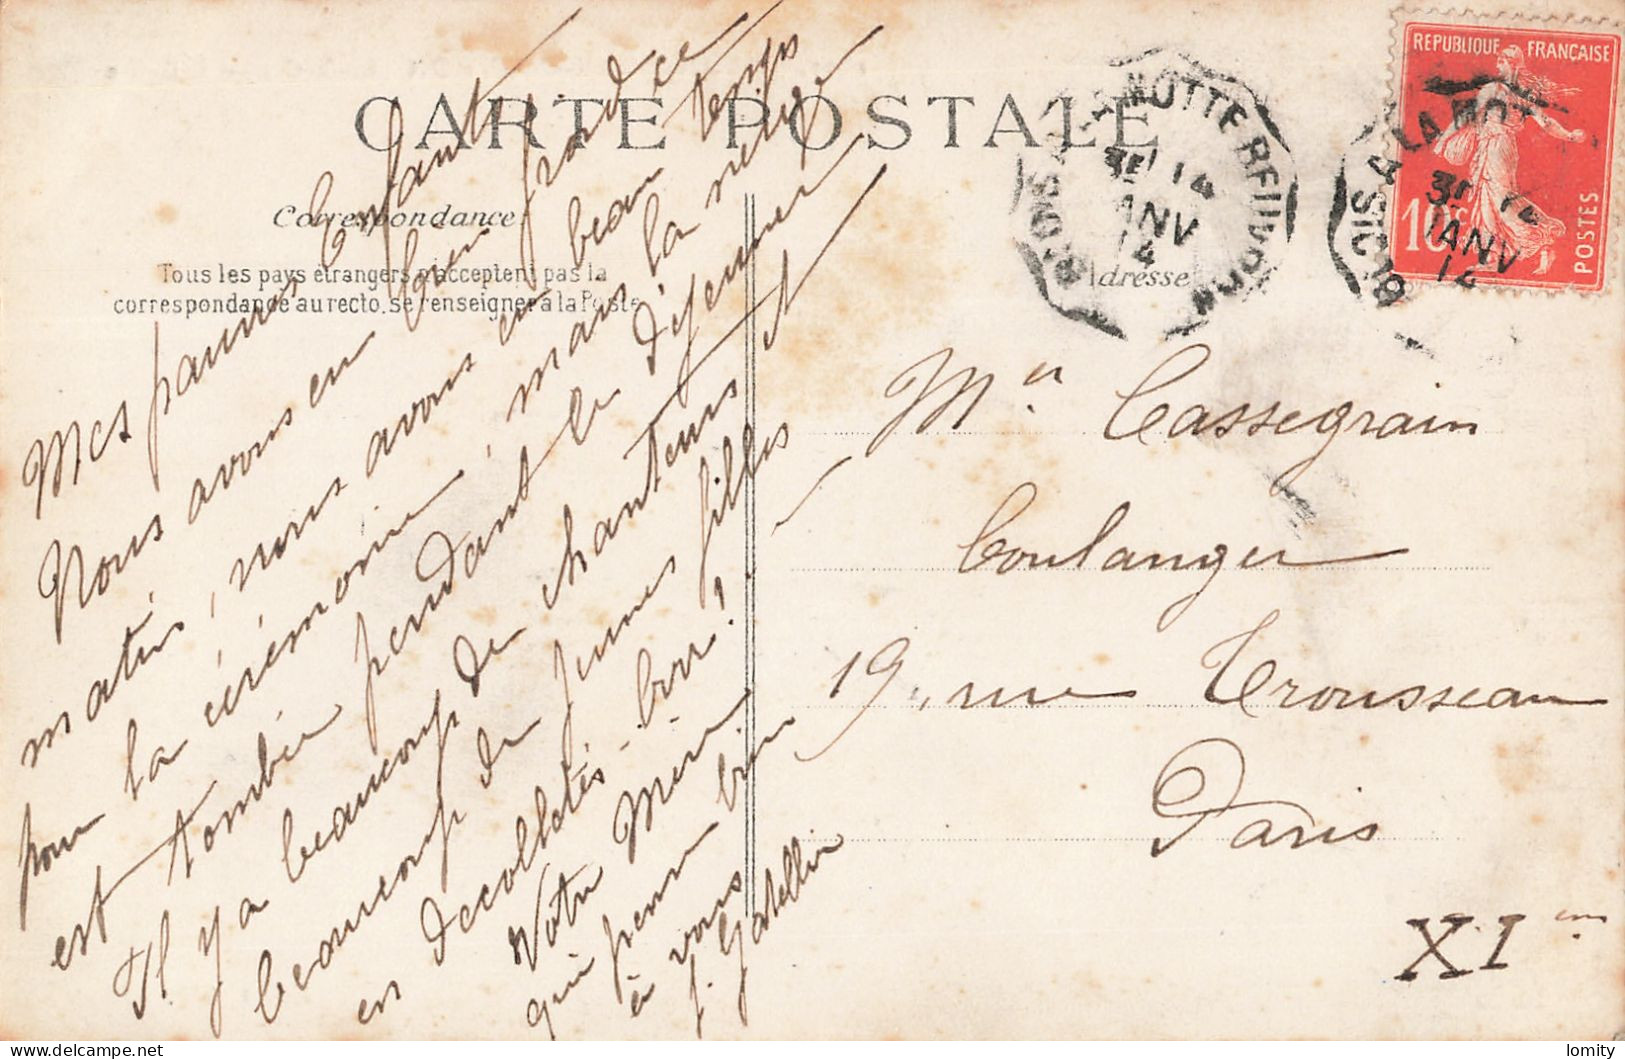 CARTE POSTALE
Correspondance
Tous les pays étrangers n'acceptent pas la
correspondance au recto, se renseigner à la Poste
Adresse
REPUBLIQUE FRANÇAISE
10c
POSTES
LA MOTTE BEUVRON
JANV
14
A LA MOT
JANV
14
Mes pauvres Enfants
Nous avons eu bien froid ce
matin, nous avons eu beau temps
pour la cérémonie, mais la neige
est tombée pendant le déjeuner
Il y a beaucoup de chanteurs et
beaucoup de jeunes filles
en décolletés - brr!
Votre Mère
qui pense bien
à vous
J. Gatellier
Mr Cassegrain
boulanger
19, rue Trousseau
Paris
XIem
lomity